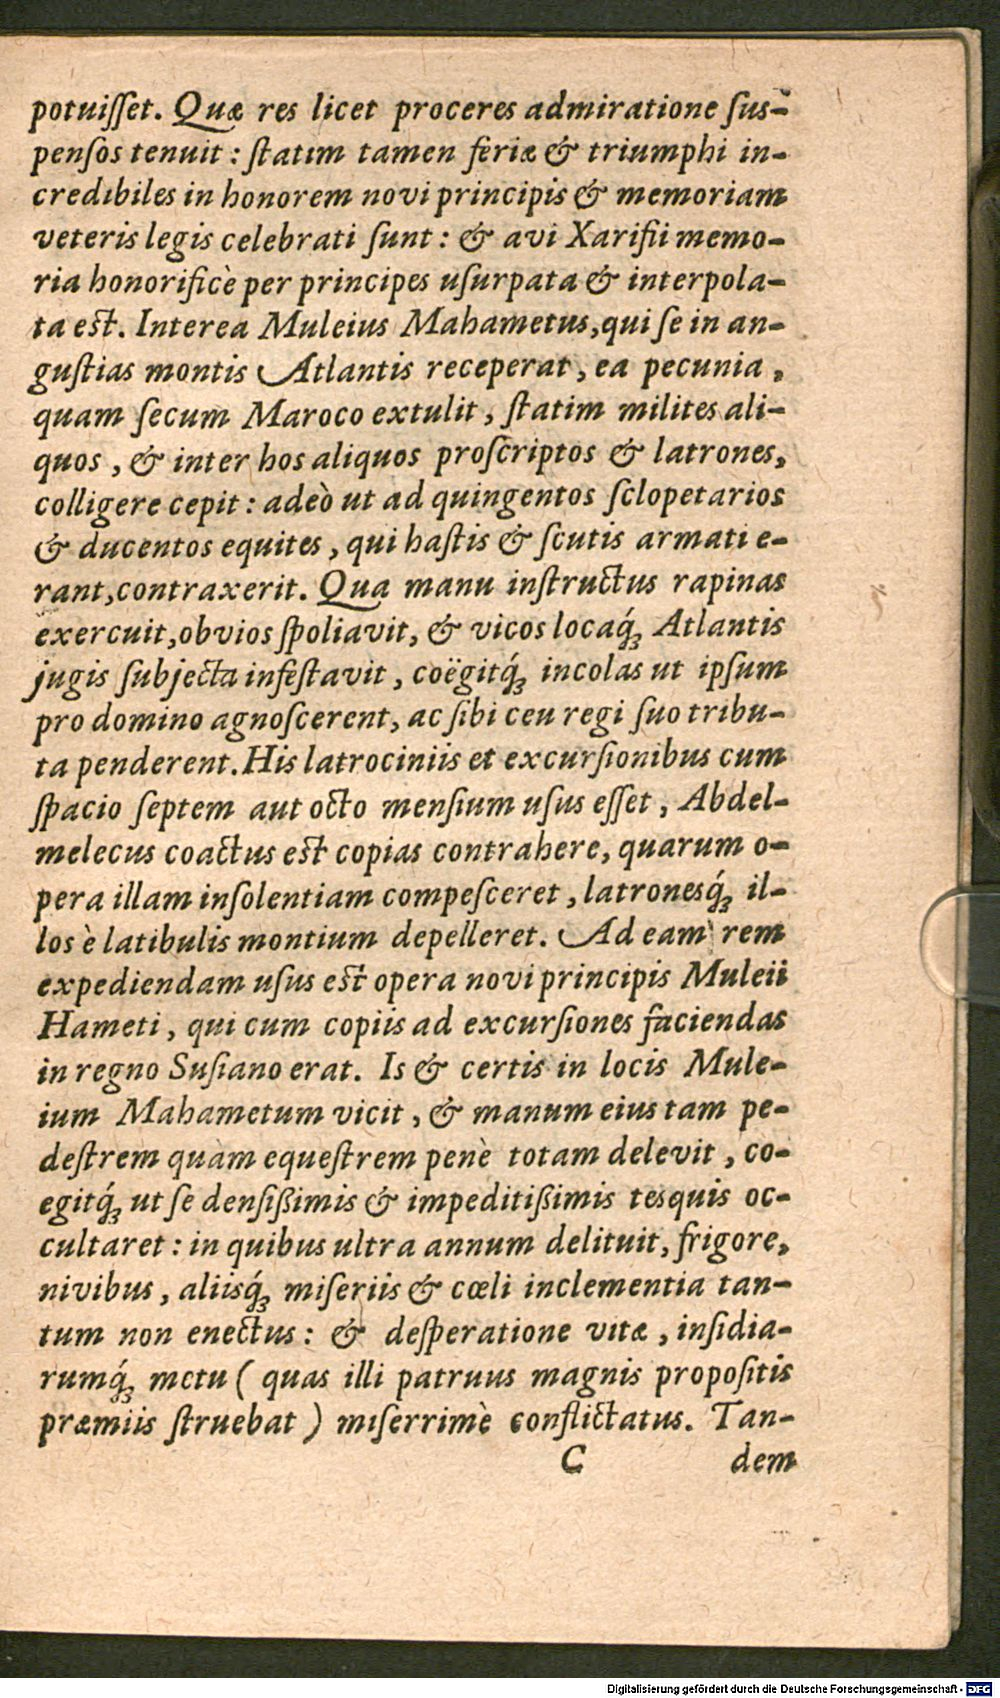 potuiſſet. Quæ res licet proceres admiratione ſuſ-
penſos tenuit: ſtatim tamen feriæ & triumphi in-
credibiles in honorem novi principis & memoriam
veteris legis celebrati ſunt: & avi Xarifii memo-
ria honorificè per principes uſurpata & interpola-
ta eſt. Interea Muleius Mahametus, qui ſe in an-
guſtias montis Atlantis receperat, ea pecunia,
quam ſecum Maroco extulit, ſtatim milites ali-
quos, & inter hos aliquos proſcriptos & latrones,
colligere cepit: adeò ut ad quingentos ſclopetarios
& ducentos equites, qui haſtis & ſcutis armati e-
rant, contraxerit. Qua manu inſtructus rapinas
exercuit, obvios ſpoliavit, & vicos locaq́; Atlantis
jugis ſubjecta infeſtavit, coëgitq́; incolas ut ipſum
pro domino agnoſcerent, ac ſibi ceu regi ſuo tribu-
ta penderent. His latrociniis et excurſionibus cum
ſpacio ſeptem aut octo menſium uſus eſſet, Abdel-
melecus coactus eſt copias contrahere, quarum o-
pera illam inſolentiam compeſceret, latronesq́; il-
los è latibulis montium depelleret. Ad eam rem
expediendam uſus eſt opera novi principis Muleii
Hameti, qui cum copiis ad excurſiones faciendas
in regno Suſiano erat. Is & certis in locis Mule-
ium Mahametum vicit, & manum eius tam pe-
deſtrem quàm equeſtrem penè totam delevit, co-
egitq́; ut ſe denſiſſimis & impeditiſſimis teſquis oc-
cultaret: in quibus ultra annum delituit, frigore,
nivibus, aliisq́; miſeriis & cœli inclementia tan-
tum non enectus: & deſperatione vitæ, inſidia-
rumq́; metu ( quas illi patruus magnis propoſitis
præmiis ſtruebat ) miſerrimè conflictatus. Tan-
C dem
Digitalisierung gefördert durch die Deutsche Forschungsgemeinschaft - DFG